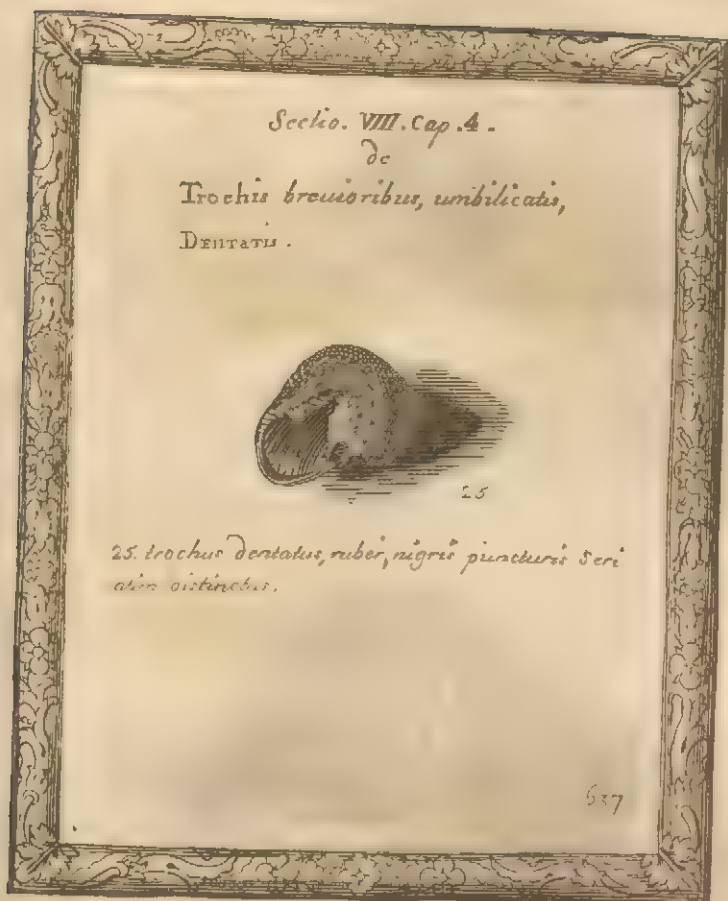 Sectio. VIIII. Cap. 4.
de
Trochis breuioribus, umbilicatis,
DENTATIS.
25
25. trochus dentatus, ruber, nigris puncturis Seri
atim distinctus.
637